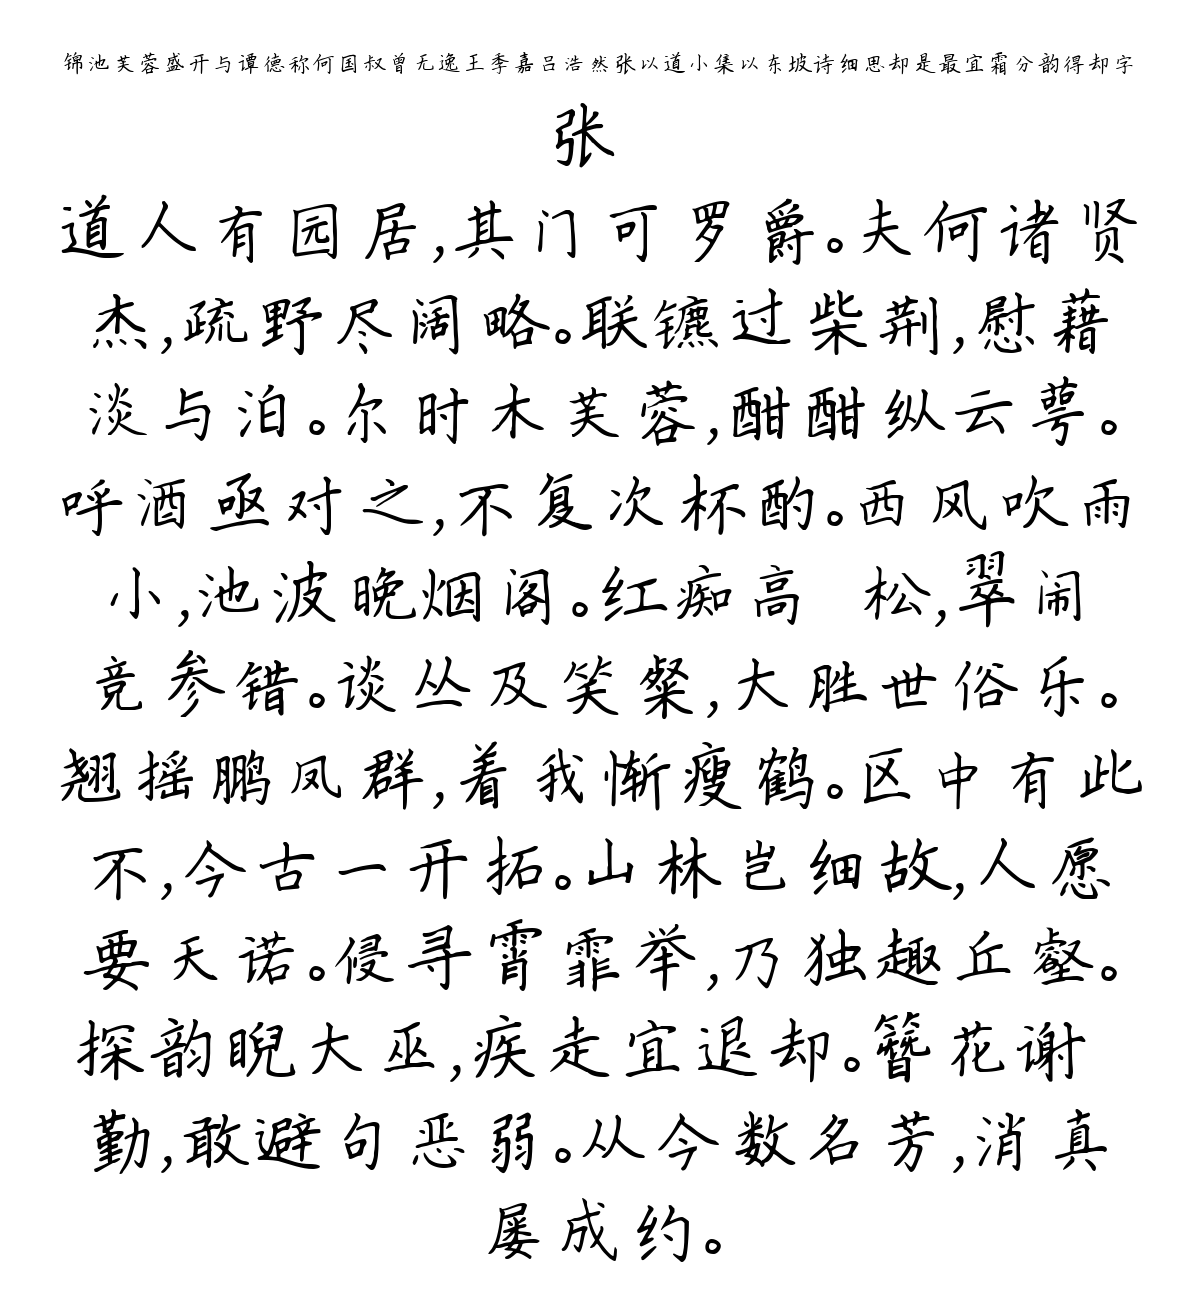 锦池芙蓉盛开与谭德称何国叔曾无逸王季嘉吕浩然张以道小集以东坡诗细思却是最宜霜分韵得却字
张
道人有园居,其门可罗爵。夫何诸贤
杰,疏野尽阔略。联镳过柴荆,慰藉
淡与泊。尔时木芙蓉,酣酣纵云萼。
呼酒亟对之,不复次杯酌。西风吹雨
小,池波晚烟阁。红痴高 松,翠闹
竞参错。谈丛及笑粲,大胜世俗乐。
翘摇鹏凤群,着我惭瘦鹤。区中有此
不,今古一开拓。山林岂细故,人愿
要天诺。侵寻霄霏举,乃独趣丘壑。
探韵睨大巫,疾走宜退却。簪花谢
勤,敢避句恶弱。从今数名芳,消真
屡成约。